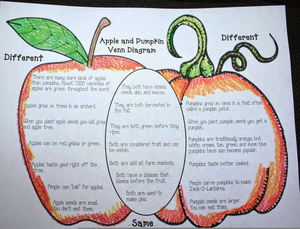 Apple and Pumpkin
Venn Diagram
Different
Different
There are many more kinds of apples
than pumpkins. About 7,500 varieties of
apples are grown throughout the world.
Apples grow on trees in an orchard.
When you plant apple seeds you will grow
and apple tree.
Apples can be red, yellow or green.
Apples taste good right off the
tree.
People can "bob" for apples.
Apple seeds are small.
You don't eat them.
They both have stems,
seeds, skin, and leaves.
They are both harvested in
the fall.
They are both green before they
ripen.
Both are considered fruit and can
be eaten.
Both are sold at farm markets.
Both have a blossom that
blooms before the fruit.
Both are used to
make pies.
Pumpkins grow on vines in a field often
called a pumpkin patch.
When you plant pumpkin seeds you get a
pumpkin.
Pumpkins are traditionally orange, but
white, cream, tan, green, and even blue
pumpkins have also become popular.
Pumpkins taste better cooked.
People carve pumpkins to make
Jack-O-Lanterns.
Pumpkin seeds are larger.
You can eat them.
Same